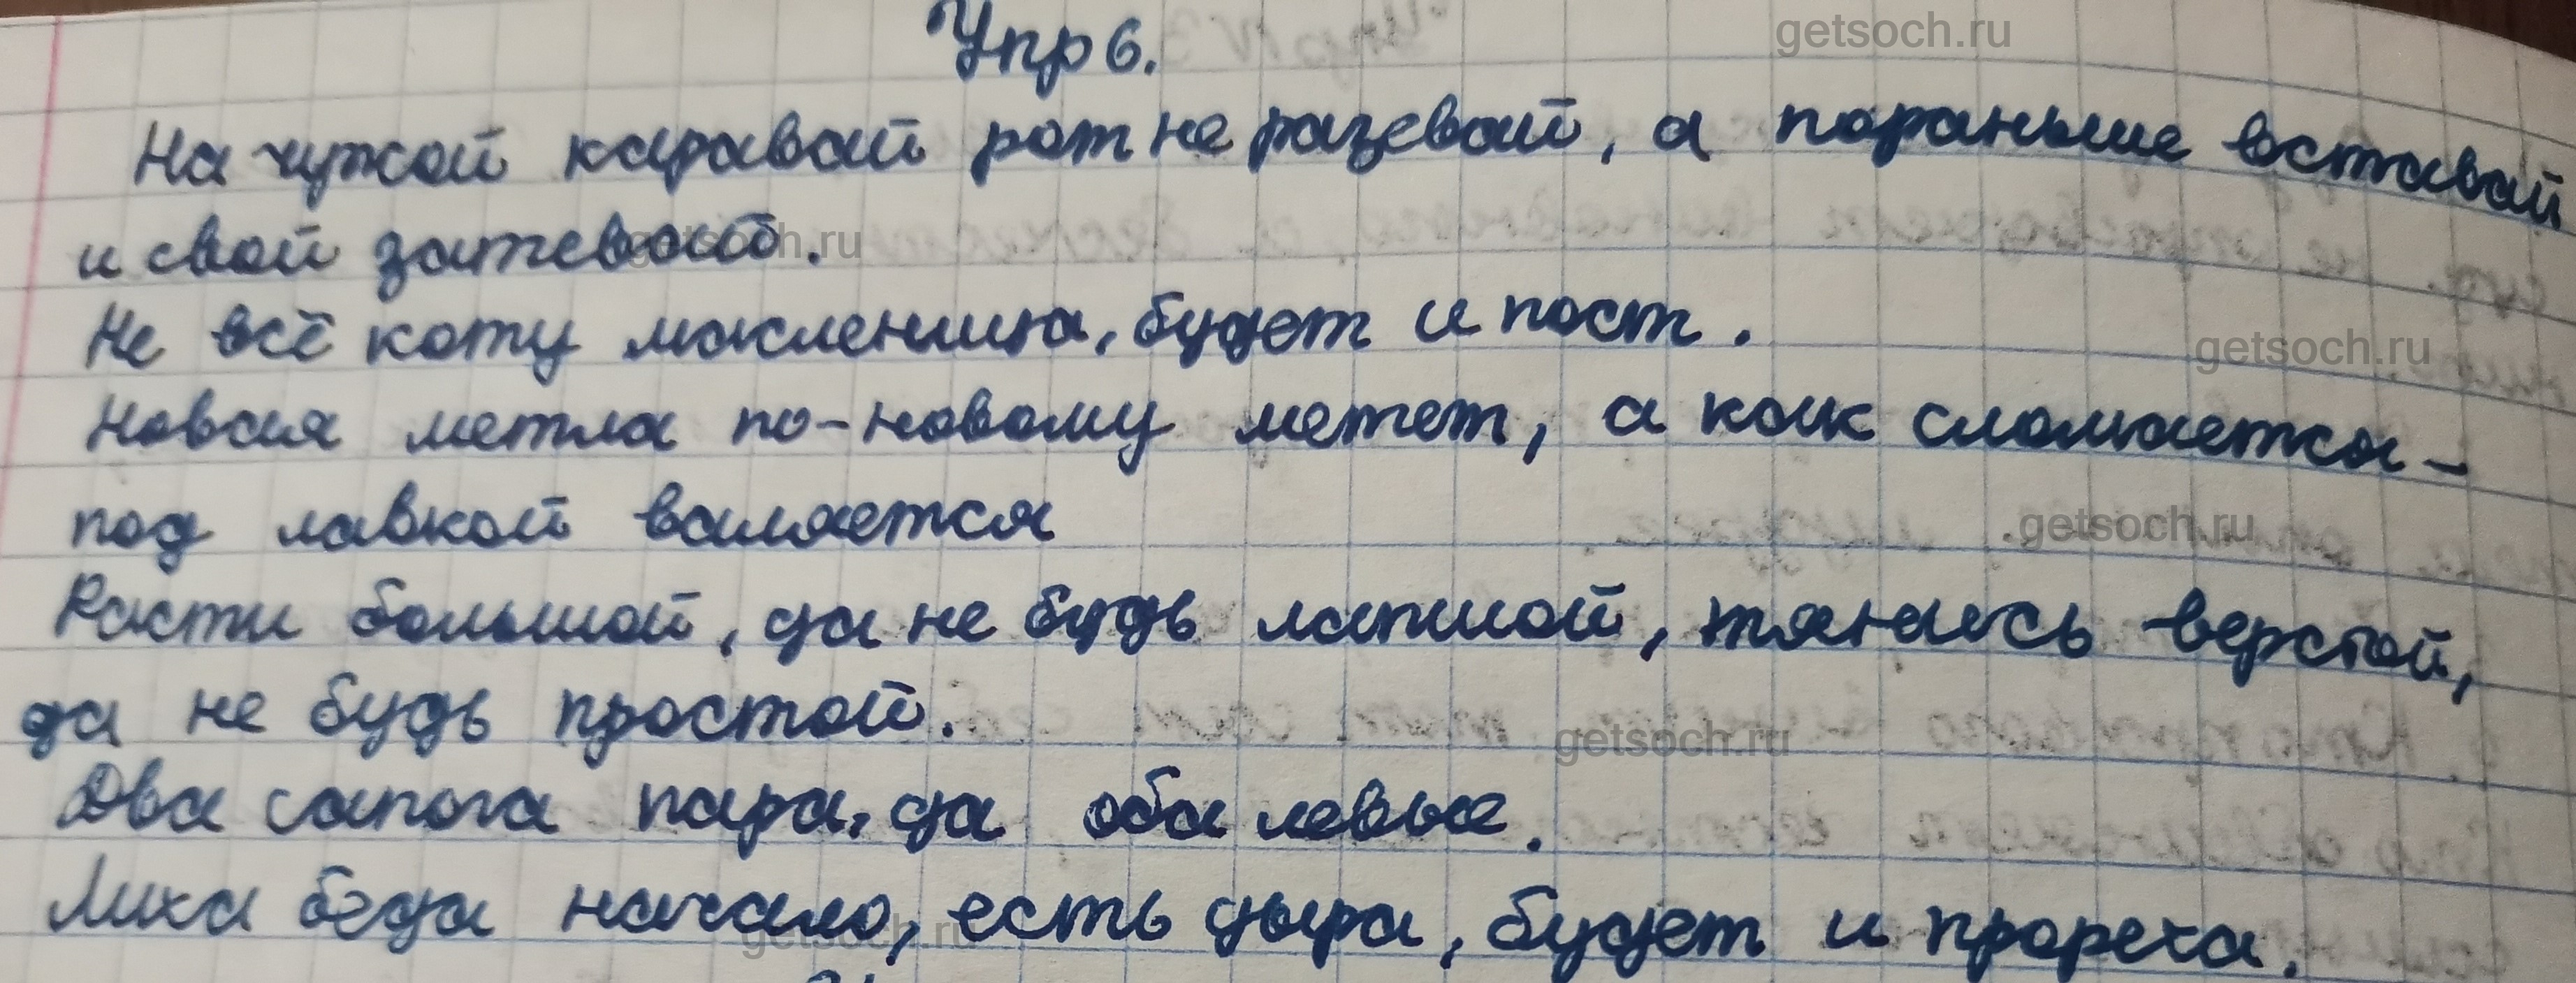 Упр 6.
На чужой каравай рот не разевай, а пораньше вставай
и свой затевай.
Не всё коту масленица, будет и пост.
Новая метла по-новому метет, а как сломается -
под лавкой валяется
Расти большой, да не будь лапшой, тянись верстой,
да не будь простой.
Два сапога пара, да оба левые.
Лиха беда начало, есть дыра, будет и прореха.
getsoch.ru
getsoch.ru
getsoch.ru
getsoch.ru
getsoch.ru
getsoch.ru